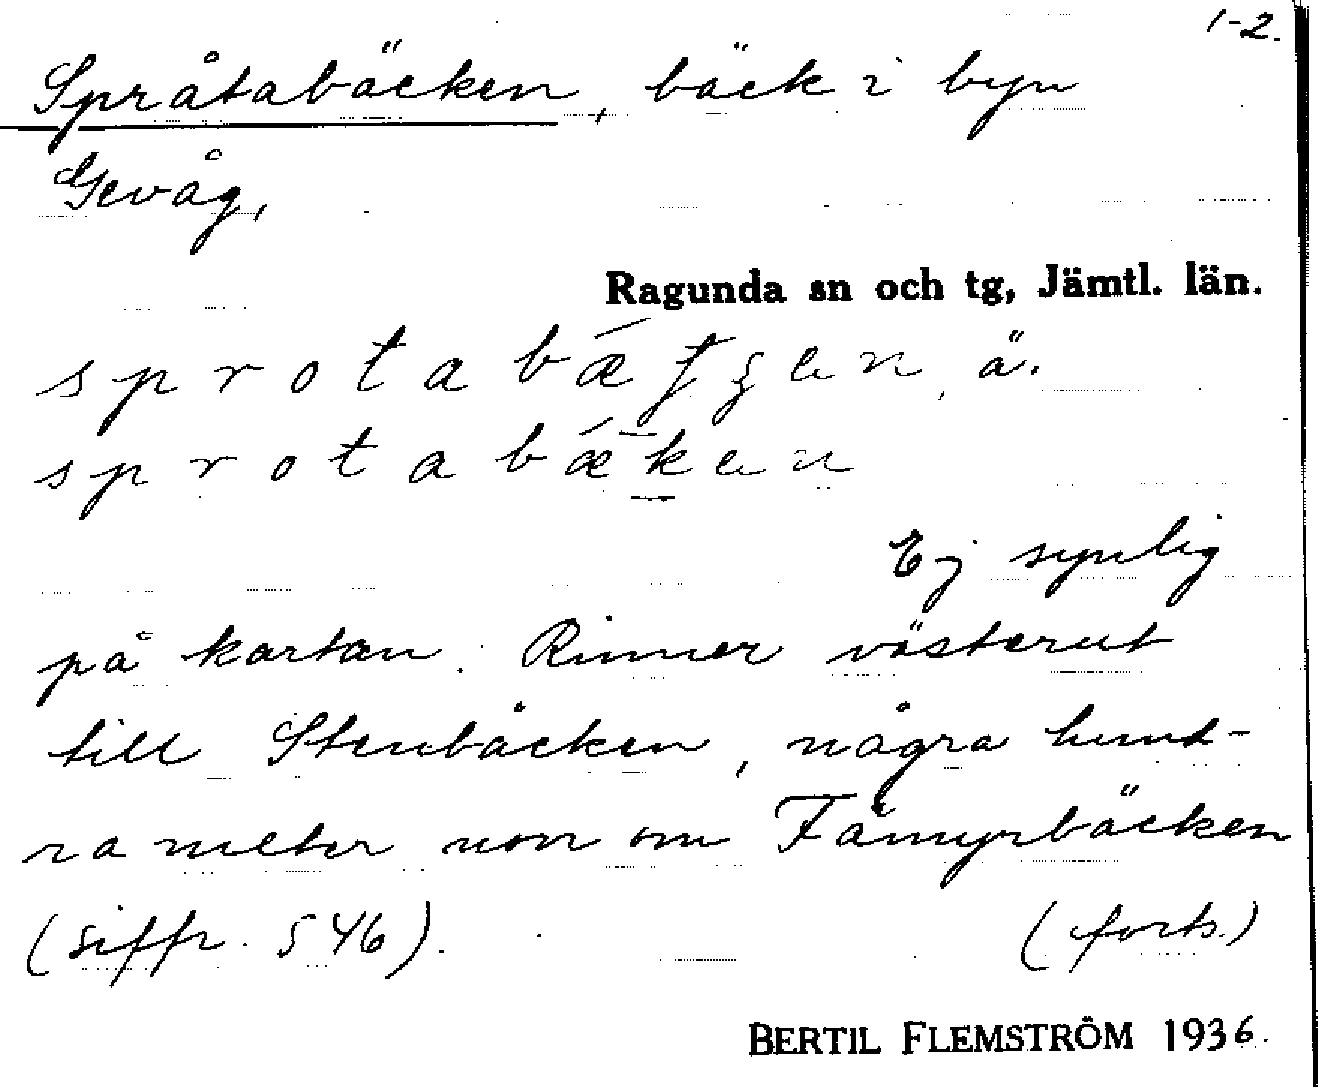 1-2.
Språtabäcken, bäck i byn
Gevåg,
Ragunda sn och tg, Jämtl. län.
ä.
Ej synlig
på kartan. Rinner västerut
till Stenbäcken, några hund-
ra meter norr om Fämyrbäcken
(siffr. 546). (forts.)
BERTIL FLEMSTRÖM 1936.